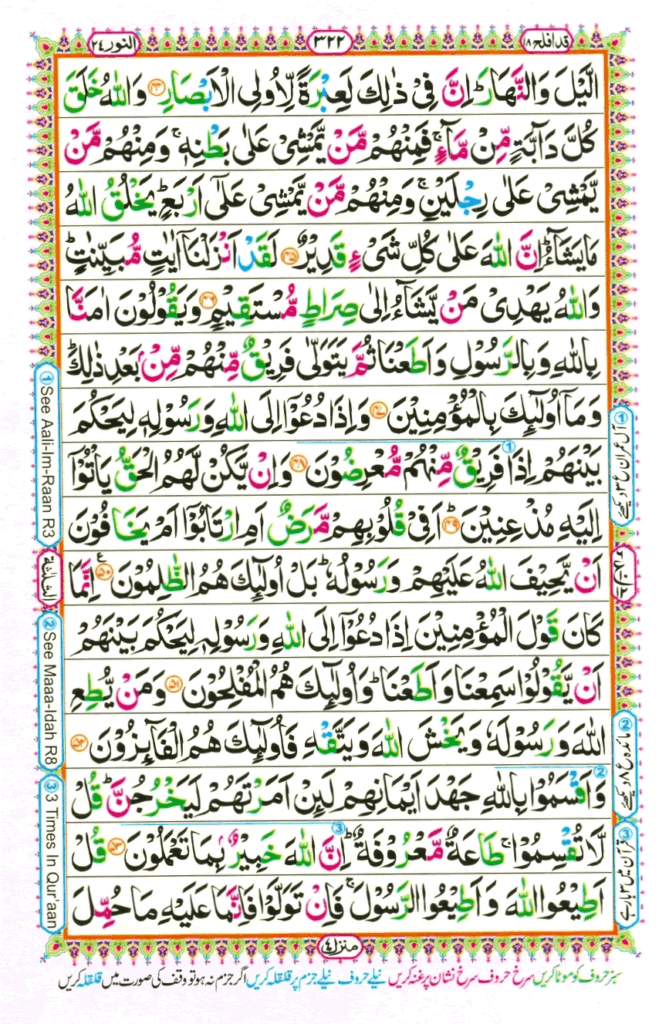 قد افلح ۱۸
۳۲۲
النور ۲۴
الَّيْلَ وَالنَّهَارَؕ اِنَّ فِيْ ذٰلِكَ لَعِبْرَةً لِّاُولِي الْاَبْصَارِ ﴿۴۴﴾ وَاللّٰهُ خَلَقَ
كُلَّ دَآبَّةٍ مِّنْ مَّآءٍۚ فَمِنْهُمْ مَّنْ يَّمْشِيْ عَلٰى بَطْنِهٖۚ وَمِنْهُمْ مَّنْ
يَّمْشِيْ عَلٰى رِجْلَيْنِۚ وَمِنْهُمْ مَّنْ يَّمْشِيْ عَلٰٓى اَرْبَعٍؕ يَخْلُقُ اللّٰهُ
مَا يَشَآءُؕ اِنَّ اللّٰهَ عَلٰى كُلِّ شَيْءٍ قَدِيْرٌ ﴿۴۵﴾ لَقَدْ اَنْزَلْنَاۤ اٰيٰتٍ مُّبَيِّنٰتٍؕ
وَاللّٰهُ يَهْدِيْ مَنْ يَّشَآءُ اِلٰى صِرَاطٍ مُّسْتَقِيْمٍ ﴿۴۶﴾ وَيَقُوْلُوْنَ اٰمَنَّا
بِاللّٰهِ وَبِالرَّسُوْلِ وَاَطَعْنَا ثُمَّ يَتَوَلّٰى فَرِيْقٌ مِّنْهُمْ مِّنْۢ بَعْدِ ذٰلِكَؕ
وَمَاۤ اُولٰٓئِكَ بِالْمُؤْمِنِيْنَ ﴿۴۷﴾ وَاِذَا دُعُوْۤا اِلَى اللّٰهِ وَرَسُوْلِهٖ لِيَحْكُمَ
بَيْنَهُمْ اِذَا فَرِيْقٌ مِّنْهُمْ مُّعْرِضُوْنَ ﴿۴۸﴾ وَاِنْ يَّكُنْ لَّهُمُ الْحَقُّ يَاْتُوْۤا
اِلَيْهِ مُذْعِنِيْنَؕ ﴿۴۹﴾ اَفِيْ قُلُوْبِهِمْ مَّرَضٌ اَمِ ارْتَابُوْۤا اَمْ يَخَافُوْنَ
اَنْ يَّحِيْفَ اللّٰهُ عَلَيْهِمْ وَرَسُوْلُهٗؕ بَلْ اُولٰٓئِكَ هُمُ الظّٰلِمُوْنَ ﴿۵۰﴾ اِنَّمَا
كَانَ قَوْلَ الْمُؤْمِنِيْنَ اِذَا دُعُوْۤا اِلَى اللّٰهِ وَرَسُوْلِهٖ لِيَحْكُمَ بَيْنَهُمْ
اَنْ يَّقُوْلُوْا سَمِعْنَا وَاَطَعْنَاؕ وَاُولٰٓئِكَ هُمُ الْمُفْلِحُوْنَ ﴿۵۱﴾ وَمَنْ يُّطِعِ
اللّٰهَ وَرَسُوْلَهٗ وَيَخْشَ اللّٰهَ وَيَتَّقْهِ فَاُولٰٓئِكَ هُمُ الْفَآئِزُوْنَ ﴿۵۲﴾
وَاَقْسَمُوْا بِاللّٰهِ جَهْدَ اَيْمَانِهِمْ لَئِنْ اَمَرْتَهُمْ لَيَخْرُجُنَّؕ قُلْ
لَّا تُقْسِمُوْاۚ طَاعَةٌ مَّعْرُوْفَةٌؕ اِنَّ اللّٰهَ خَبِيْرٌۢ بِمَا تَعْمَلُوْنَ ﴿۵۳﴾ قُلْ
اَطِيْعُوا اللّٰهَ وَاَطِيْعُوا الرَّسُوْلَۚ فَاِنْ تَوَلَّوْا فَاِنَّمَا عَلَيْهِ مَا حُمِّلَ
① See Aali-Im-Raan R3
② See Maaa-Idah R8
③ 3 Times In Qur'aan
① آل عمران ع ۳ دیکھئے
② مائدہ ع ۸ دیکھئے
③ قرآن میں ۳ بار ہے
منزل ۴
سبز حروف کو موٹا کریں سرخ حروف سرخ نشان پر غنہ کریں نیلے حروف نیلے جزم پر قلقلہ کریں اگر جزم نہ ہو تو وقف کی صورت میں قلقلہ کریں